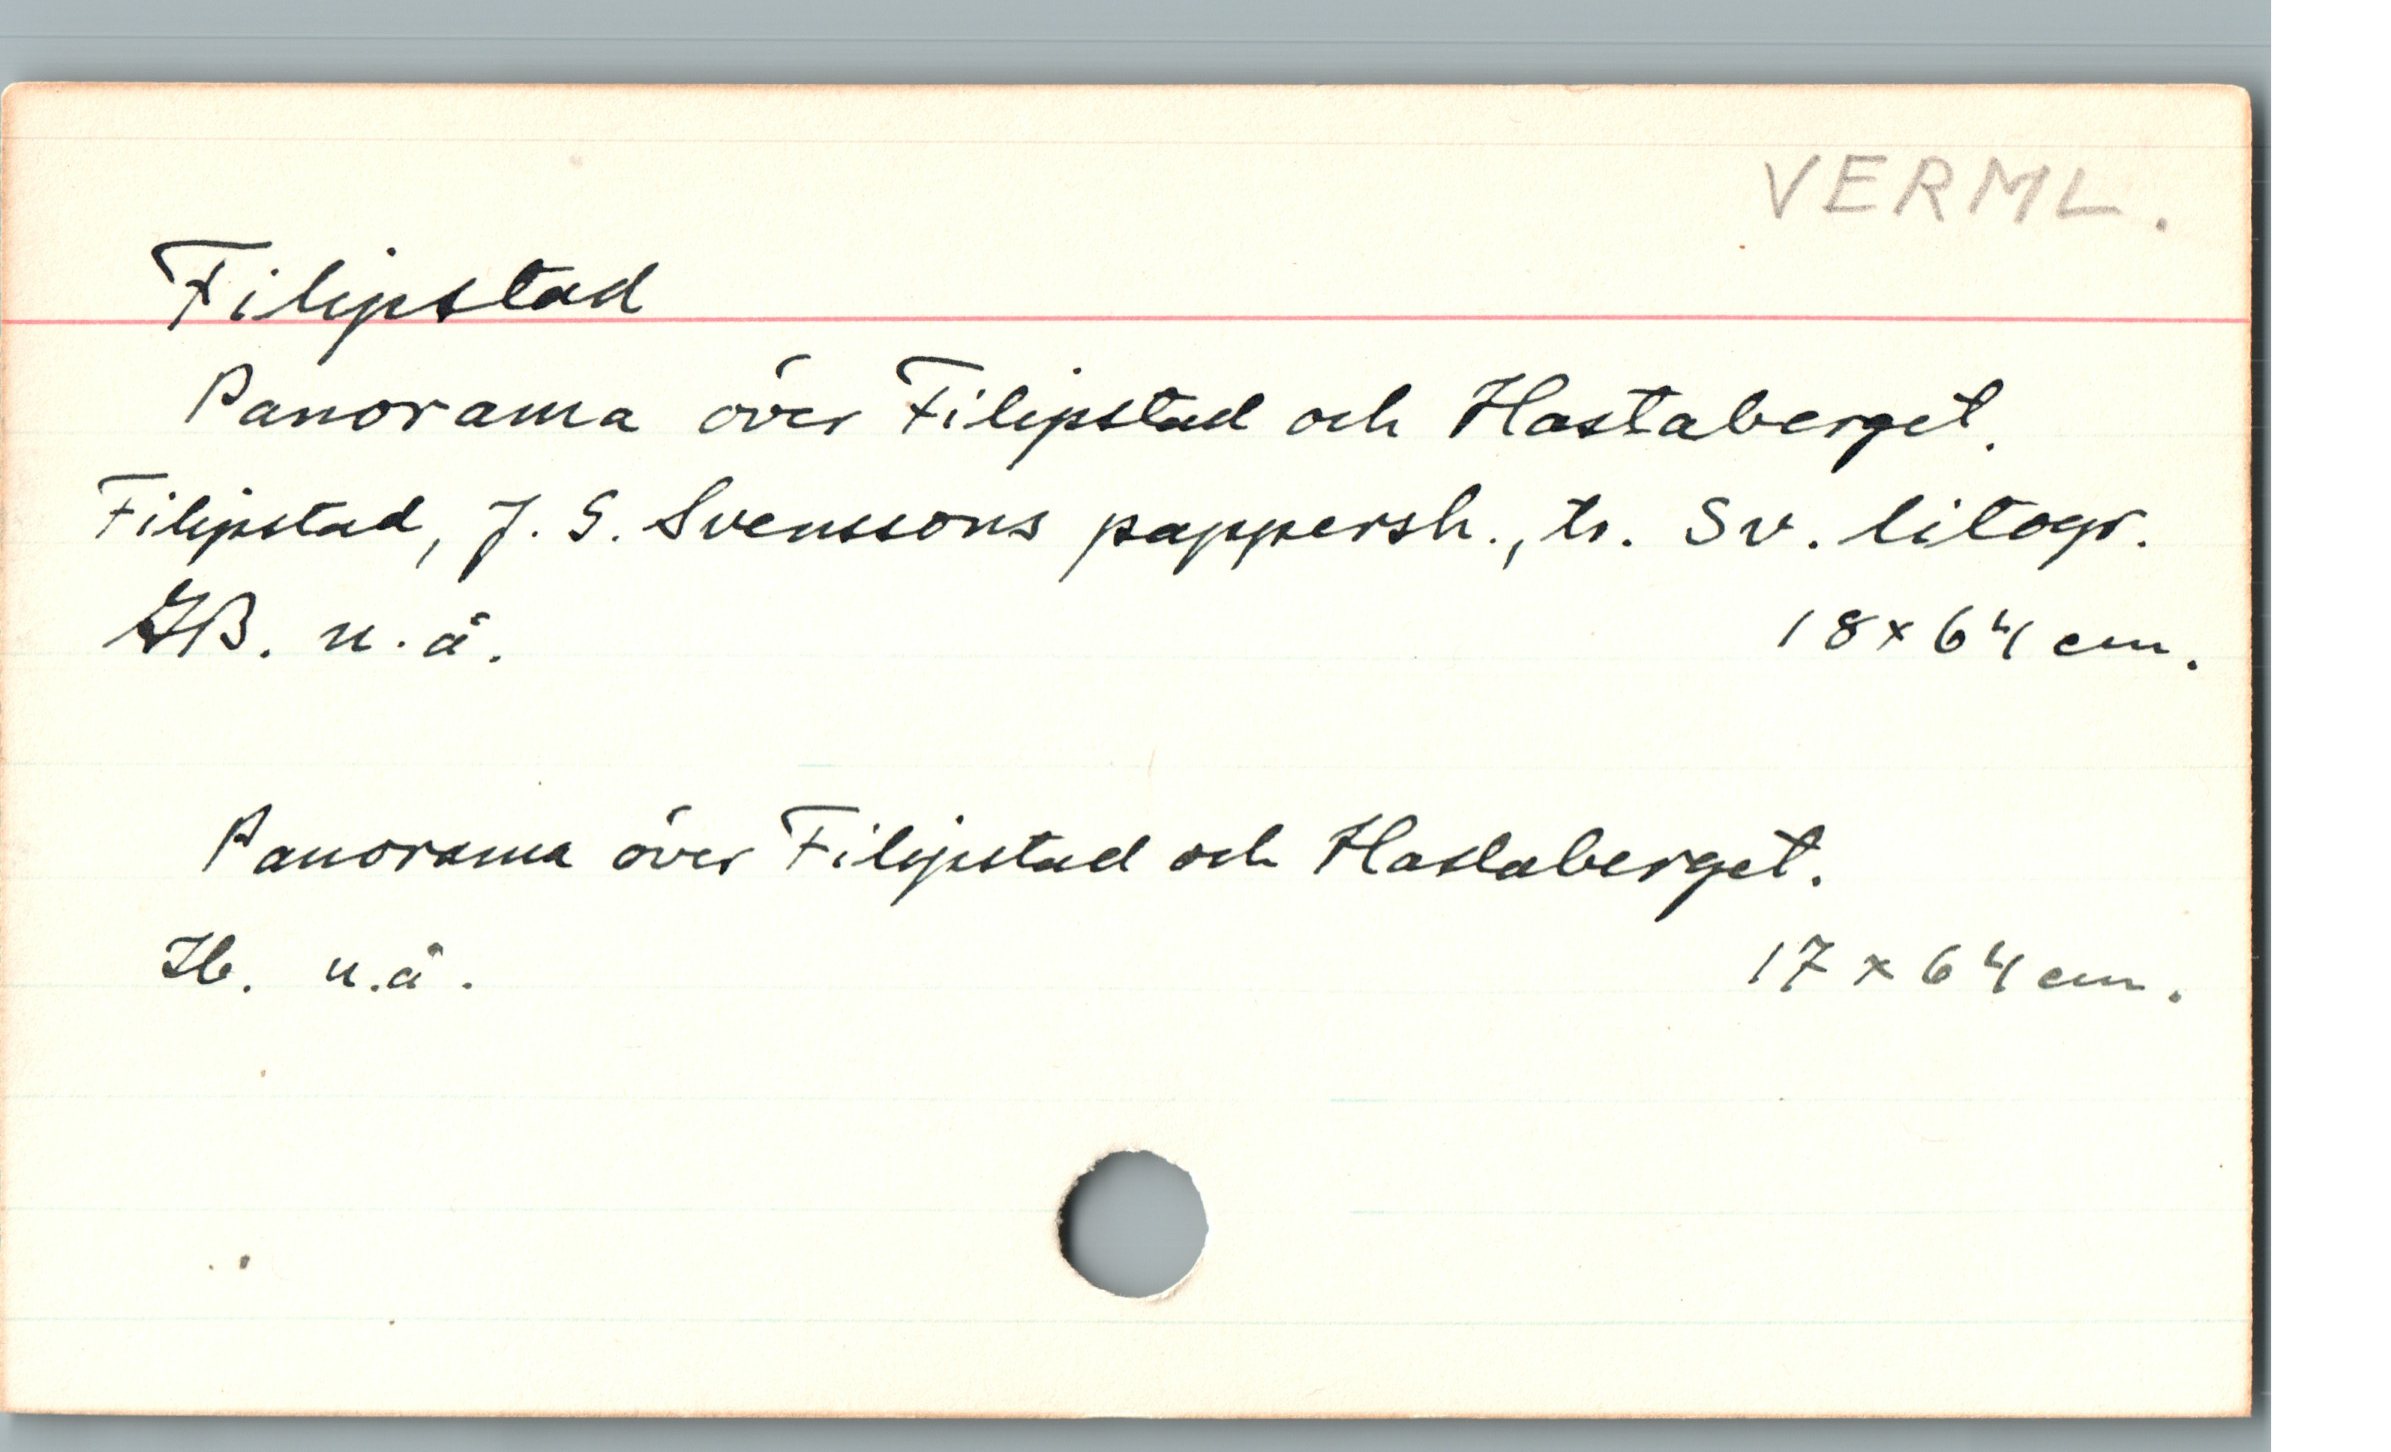 VERML.
Filipstad
Panorama över Filipstad och Hastaberget.
Filipstad, J. S. Svenssons pappersh., tr. Sv. litogr.
AB. u.å. 18×64 cm.
Panorama över Filipstad och Hastaberget.
u.å. 17×64 cm.